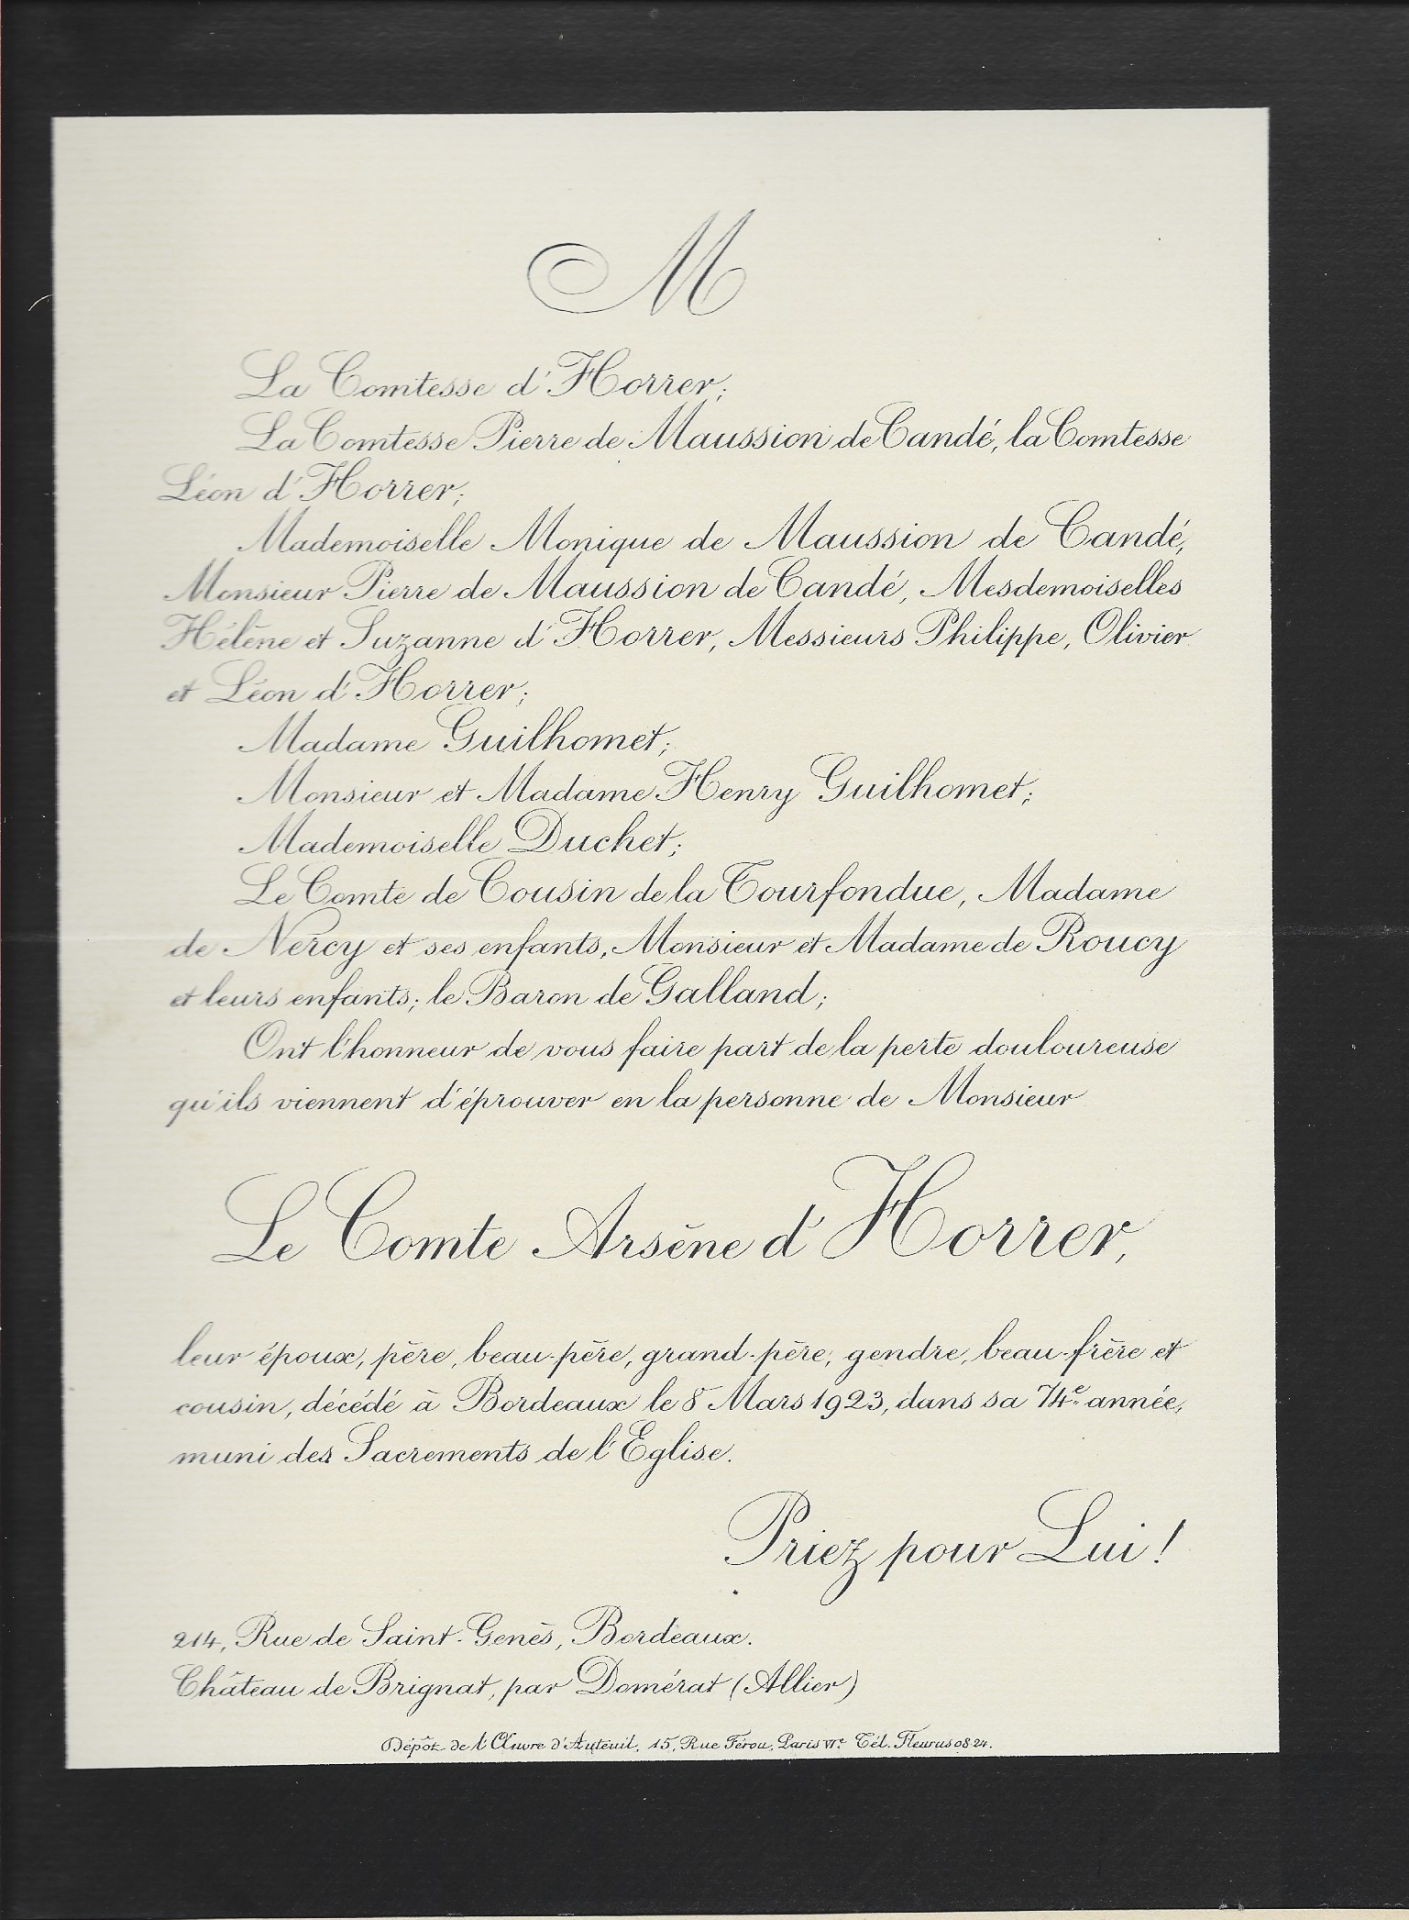 M
La Comtesse d'Horrer;
La Comtesse Pierre de Maussion de Candé, la Comtesse
Léon d'Horrer;
Mademoiselle Monique de Maussion de Candé,
Monsieur Pierre de Maussion de Candé, Mesdemoiselles
Hélène et Suzanne d'Horrer, Messieurs Philippe, Olivier
et Léon d'Horrer;
Madame Guilhomet;
Monsieur et Madame Henry Guilhomet;
Mademoiselle Duchet;
Le Comte de Cousin de la Tourfondue, Madame
de Nercy et ses enfants, Monsieur et Madame de Roucy
et leurs enfants; le Baron de Galland;
Ont l'honneur de vous faire part de la perte douloureuse
qu'ils viennent d'éprouver en la personne de Monsieur
Le Comte Arsène d'Horrer,
leur époux, père, beau-père, grand-père, gendre, beau-frère et
cousin, décédé à Bordeaux le 8 Mars 1923, dans sa 74e année,
muni des Sacrements de l'Eglise.
Priez pour Lui!
214, Rue de Saint-Genès, Bordeaux.
Château de Brignat, par Domérat (Allier)
Dépôt de l'Œuvre d'Auteuil, 15, Rue Férou, Paris VIe Tél. Fleurus 08 24.